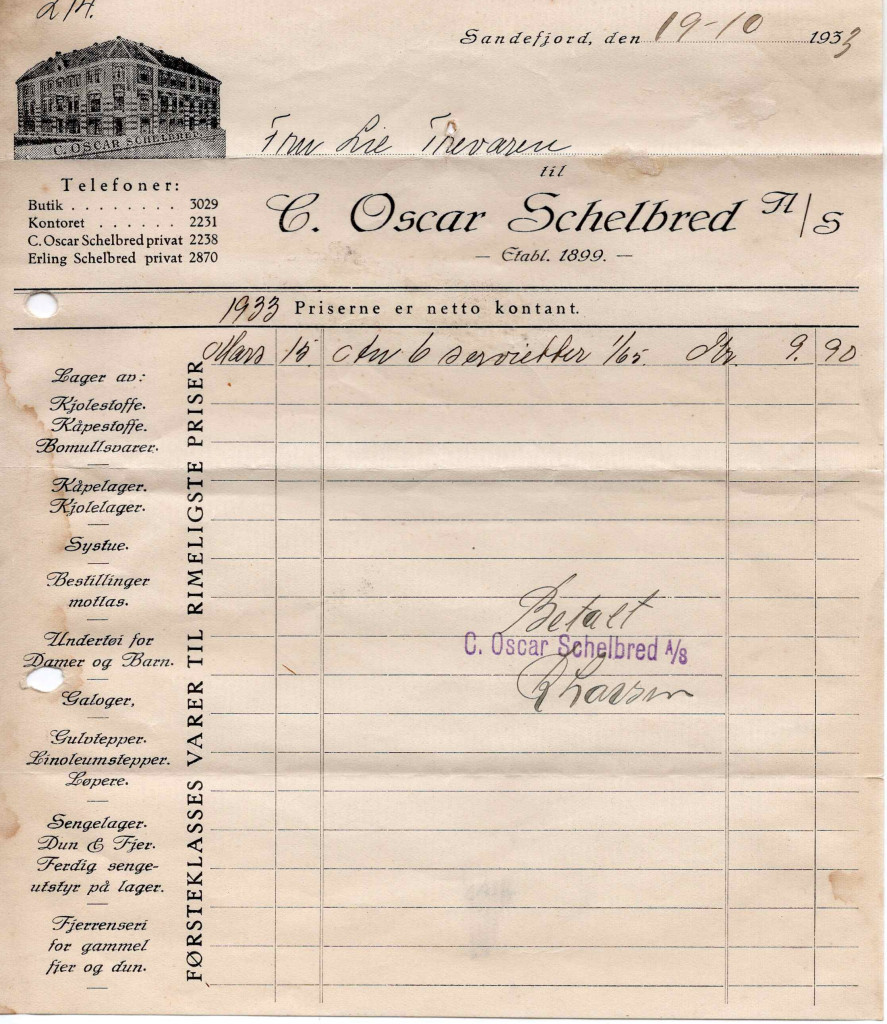 214.
Sandefjord, den 19-10 1933
C. OSCAR SCHELBRED
Fru Lie Trevaren
til
Telefoner:
Butik . . . . . . . . 3029
Kontoret . . . . . . 2231
C. Oscar Schelbred privat 2238
Erling Schelbred privat 2870
C. Oscar Schelbred A/S
— Etabl. 1899. —
1933 Priserne er netto kontant.
Mars 15 6 servietter 1/65 Kr. 9. 90
Lager av:
Kjolestoffe.
Kåpestoffe.
Bomullsvarer.
Kåpelager.
Kjolelager.
Systue.
Bestillinger
mottas.
Undertøi for
Damer og Barn.
Galoger,
Gulvtepper.
Linoleumstepper.
Løpere.
Sengelager.
Dun & Fjer.
Ferdig senge-
utstyr på lager.
Fjerrenseri
for gammel
fjer og dun.
FØRSTEKLASSES VARER TIL RIMELIGSTE PRISER
Betalt
C. Oscar Schelbred A/S
R Larsen